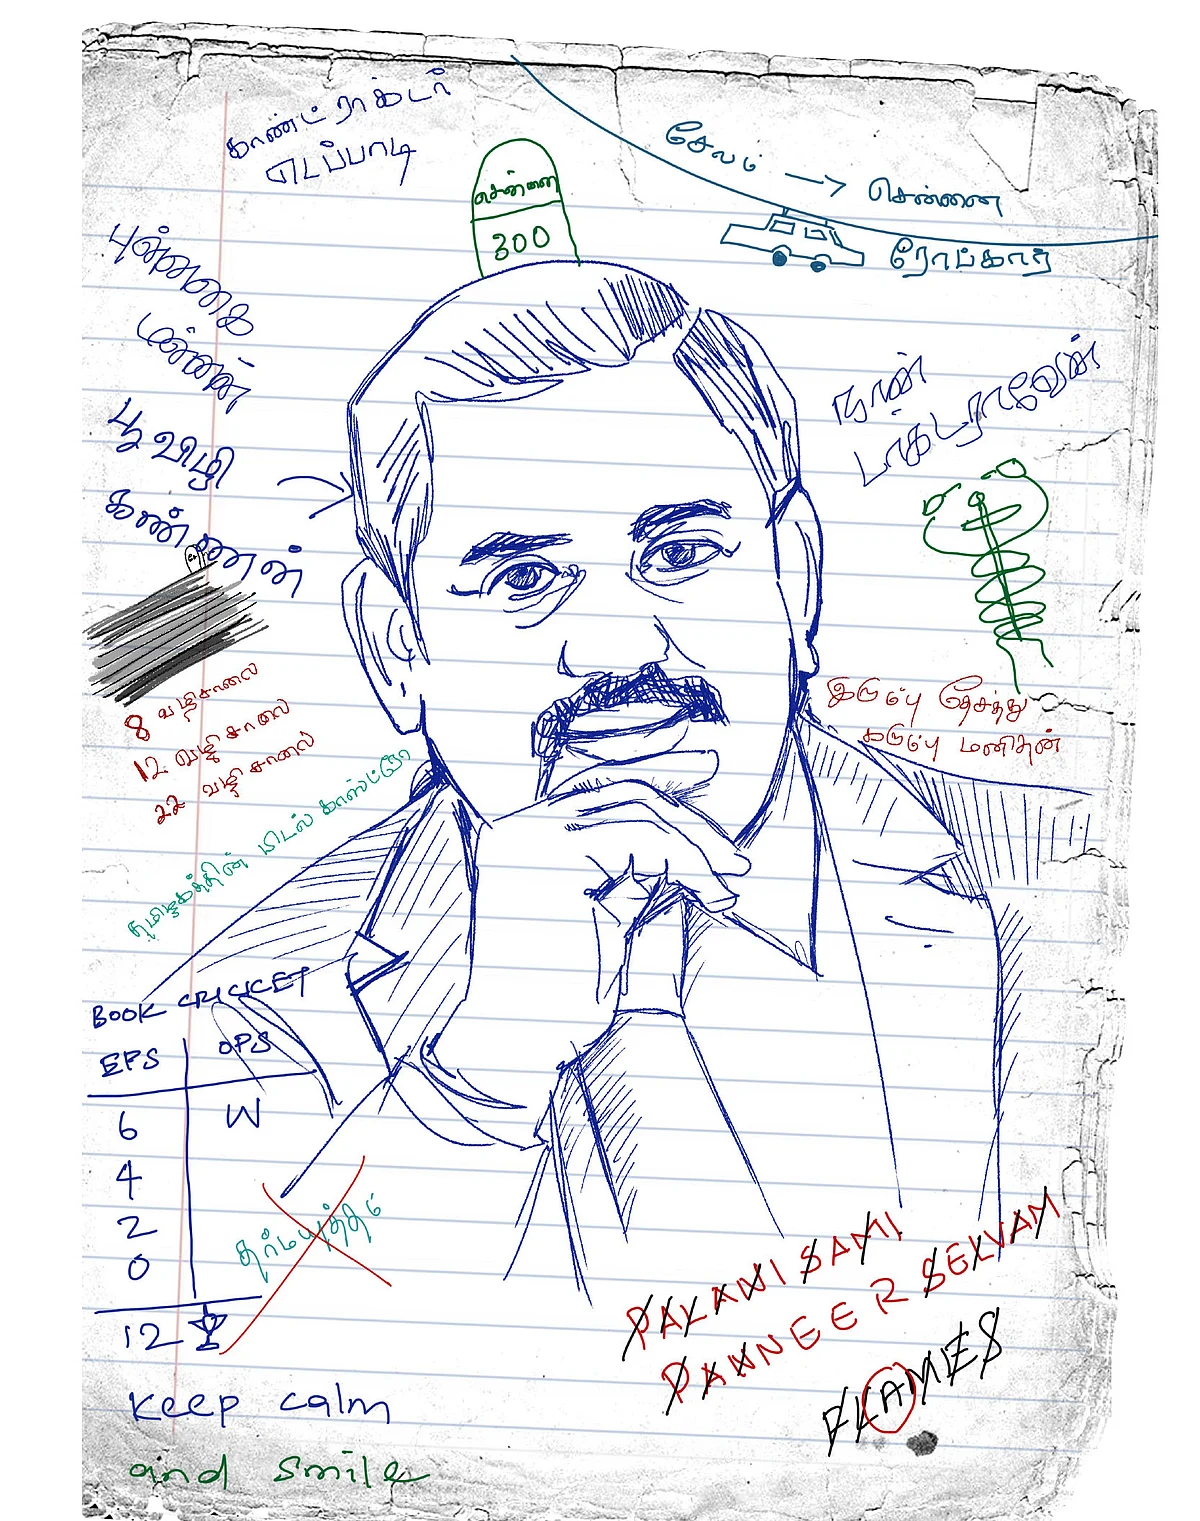 காண்ட்ராக்டர்
எடப்பாடி
சென்னை
300
சேலம் → சென்னை
ரோப்கார்
புன்னகை
மன்னன்
பூவிழி
கண்ணன்
நான்
டாக்டராவேன்
இரும்பு தேசத்து
கரும்பு மனிதன்
8 வழிசாலை
12 வழி சாலை
22 வழி சாலை
தமிழகத்தின் மிடல் காஸ்ட்ரோ
BOOK CRICKET
EPS OPS
6 W
4
2
0
12
தர்மயுத்தம்
PALANISAMI
PANNEER SELVAM
FLAMES
Keep calm
and smile